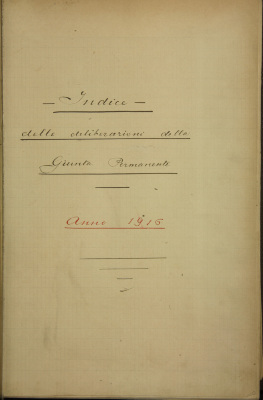 - Indice -
delle deliberazioni della
Giunta Permanente
Anno 1916